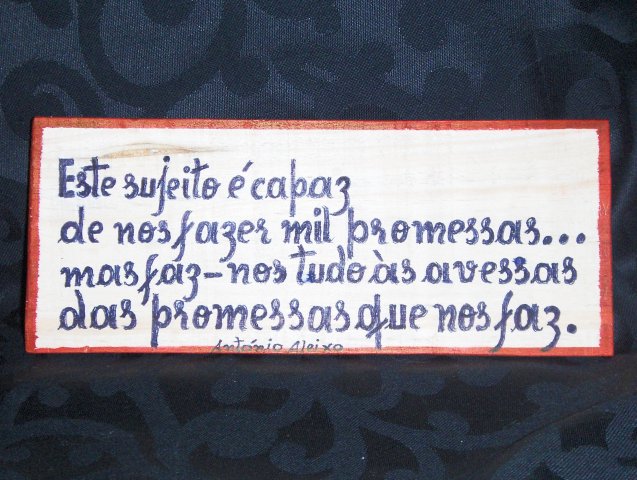 Este sujeito é capaz
de nos fazer mil promessas...
mas faz-nos tudo às avessas
das promessas que nos faz.
António Aleixo